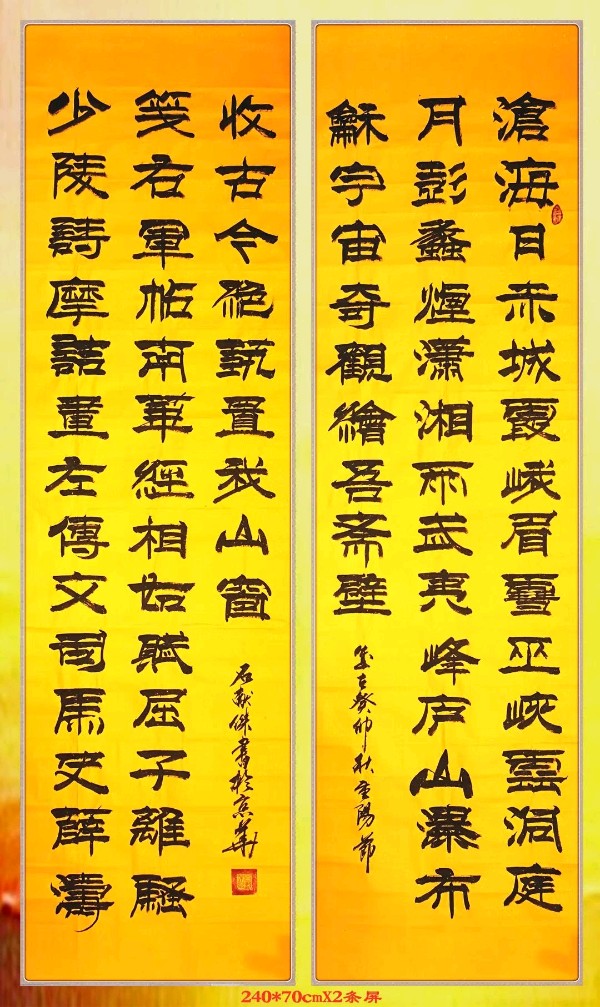 滄海日赤城霞峨眉雪巫峽雲洞庭
月彭蠡煙瀟湘雨武夷峰庐山瀑布
龢宇宙奇觀繪吾斋壁
歲在癸卯秋重陽節
少陵詩摩詰畫左傳文司馬史薛濤
箋右軍帖南華經相如賦屈子離騷
收古今絕藝置我山窗
石献書於京華
240*70cmX2条屏